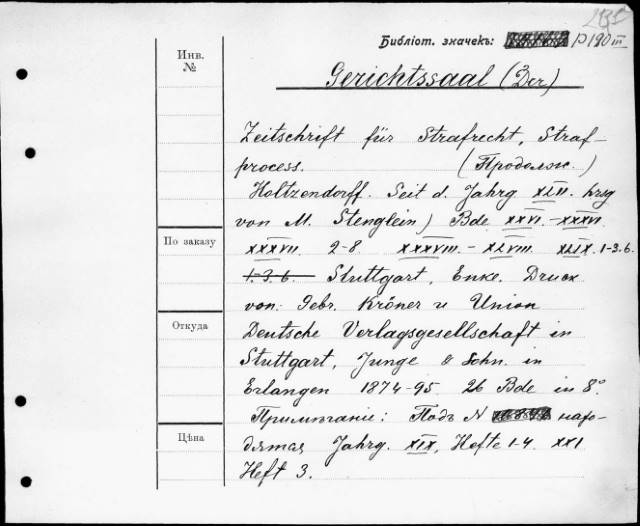 Библіот. значекъ: P 190 III
Инв.
№
Gerichtssaal (Der)
Zeitschrift für Strafrecht, Straf-
process. (Продолж.)
Holtzendorff. Seit d. Jahrg XLII. hrsg
von M. Stenglein) Bde XXVI.-XXXVI.
По заказу
XXXVII. 2-8 XXXVIII.-XLVIII. XLIX. 1-3.6.
1.3.6. Stuttgart, Enke. Druck
von Gebr. Kröner u Union
Откуда
Deutsche Verlagsgesellschaft in
Stuttgart, Junge & Sohn. in
Erlangen 1874-95 26 Bde in 8°
Примѣчаніе: Подъ N нахо-
Цѣна
дятся Jahrg. XIX, Hefte 1-4. XXI
Heft 3.